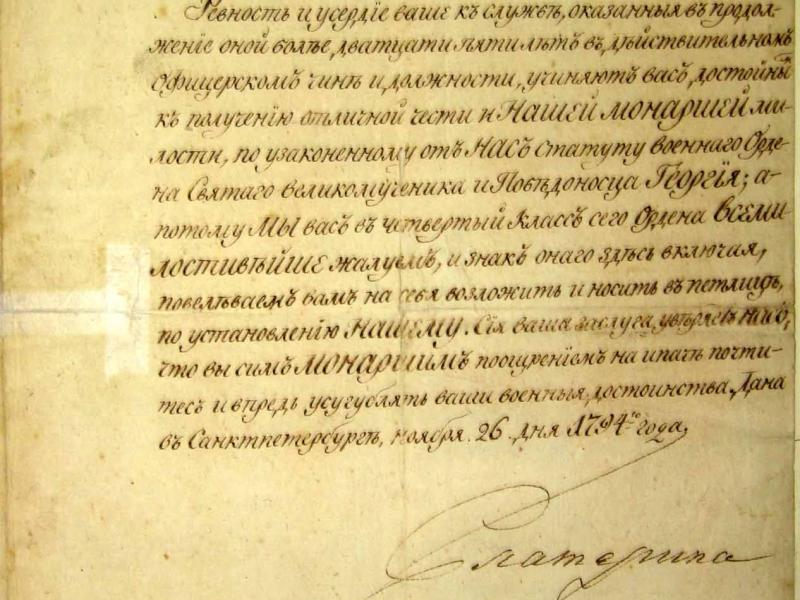 Ревность и усердіе ваше къ службѣ, оказанныя въ продол-
женіе оной болѣе дватцати пяти лѣтъ въ дѣйствительномъ
офицерскомъ чинѣ и должности, учиняютъ васъ достойны
къ полученію отличной чести и НАШЕЙ МОНАРШЕЙ ми-
лости, по узаконенному отъ НАСЪ статуту военнаго Орде-
на Святаго великомученика и Побѣдоносца ГЕОРГІЯ; а-
потому МЫ васъ въ четвертый Классъ сего Ордена ВСЕМИ
ЛОСТИВѢЙШЕ жалуемъ, и знакъ онаго здѣсь включая,
повелѣваемъ вамъ на себя возложить и носить въ петлицѣ,
по установленію НАШЕМУ. Сія ваша заслуга увѣряетъ НАСЪ,
что вы симъ МОНАРШИМЪ поощреніемъ на почти-
тесь и впредь усугублять ваши военныя достоинства. Дана
въ Санктпетербургѣ, ноября 26 дня 1794го года.
Екатерина